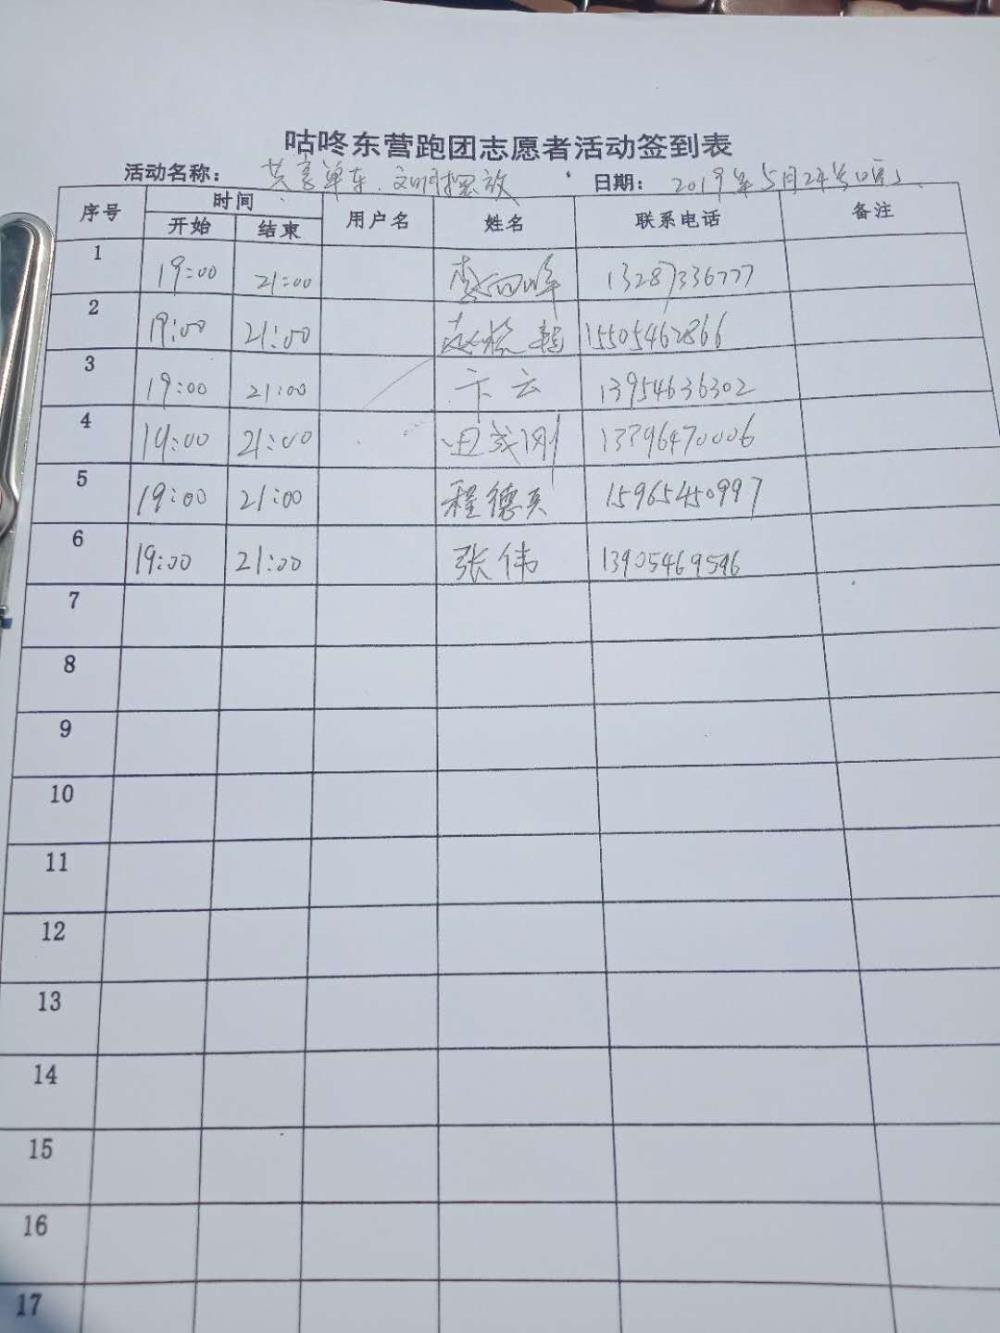 咕咚东营跑团志愿者活动签到表
活动名称： 共享单车、文明摆放 日期： 2019年5月24号
序号 时间 用户名 姓名 联系电话 备注
开始 结束
1 19:00 21:00 13287336777
2 19:00 21:00 15505462866
3 19:00 21:00 卞云 13954636302
4 19:00 21:00 田成刚
5 19:00 21:00 程德英 15965450997
6 19:00 21:00 张伟 13905469596
7
8
9
10
11
12
13
14
15
16
17